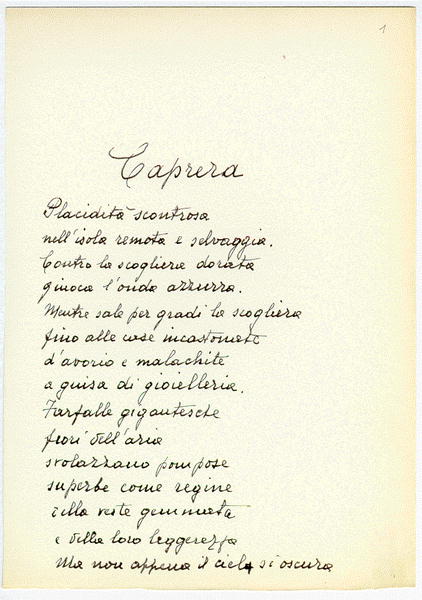 1
Caprera
Placidità scontrosa
nell'isola remota e selvaggia.
Contro la scogliera dorata
giuoca l'onda azzurra.
Mentre sale per gradi la scogliera
fino alle case incastonate
d'avorio e malachite
a guisa di gioielleria.
Farfalle gigantesche
fiori dell'aria
svolazzano pompose
superbe come regine
della veste gemmata
e della loro leggerezza
Ma non appena il cielo si oscura